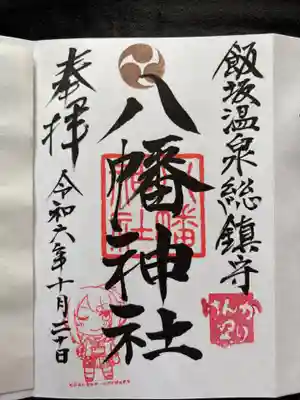 飯坂温泉総鎮守
けんか祭り
八幡神社
奉拝
令和六年十月二十日